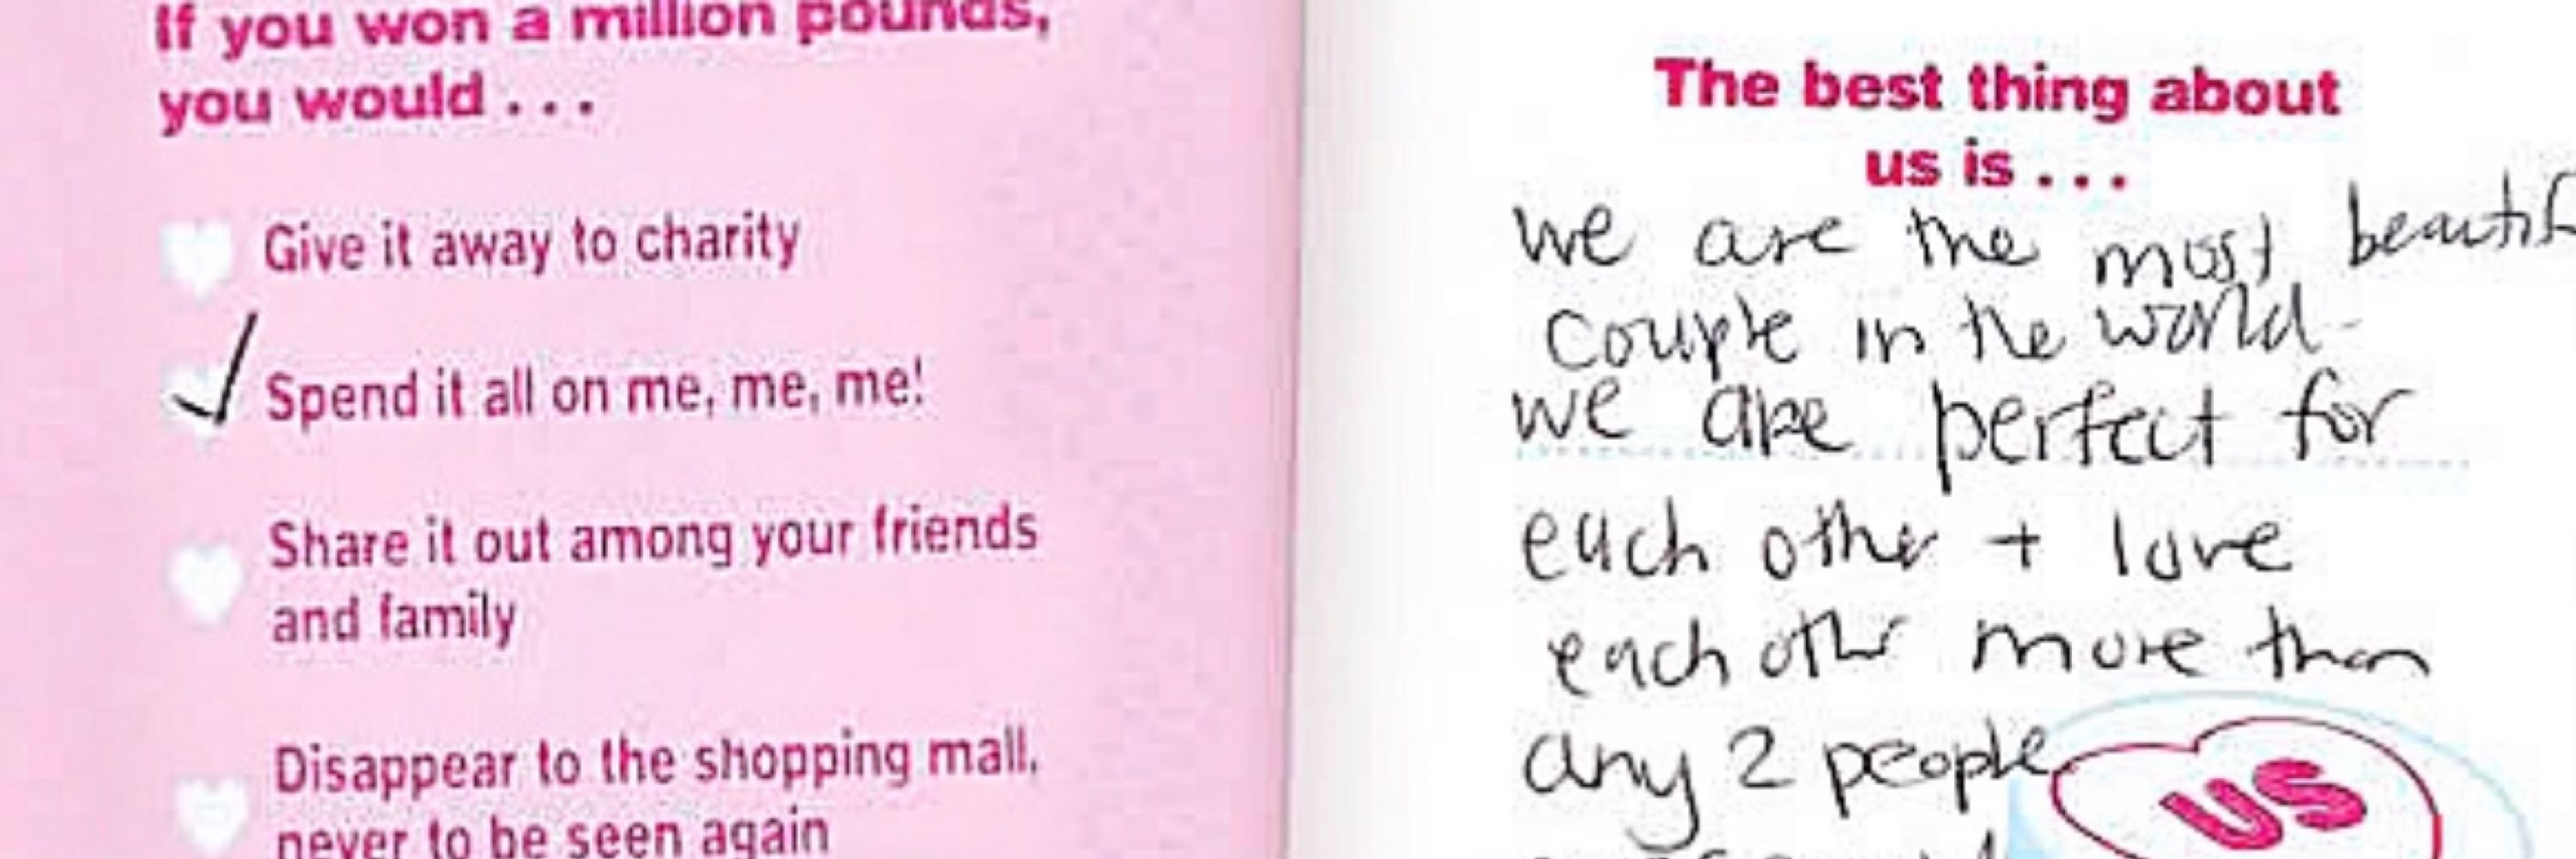 If you won a million pounds,
you would . . .
Give it away to charity
Spend it all on me, me, me!
Share it out among your friends
and family
Disappear to the shopping mall,
never to be seen again
The best thing about
us is . . .
we are the most beautif
couple in the world.
we are perfect for
each other + love
each other more than
any 2 people
US